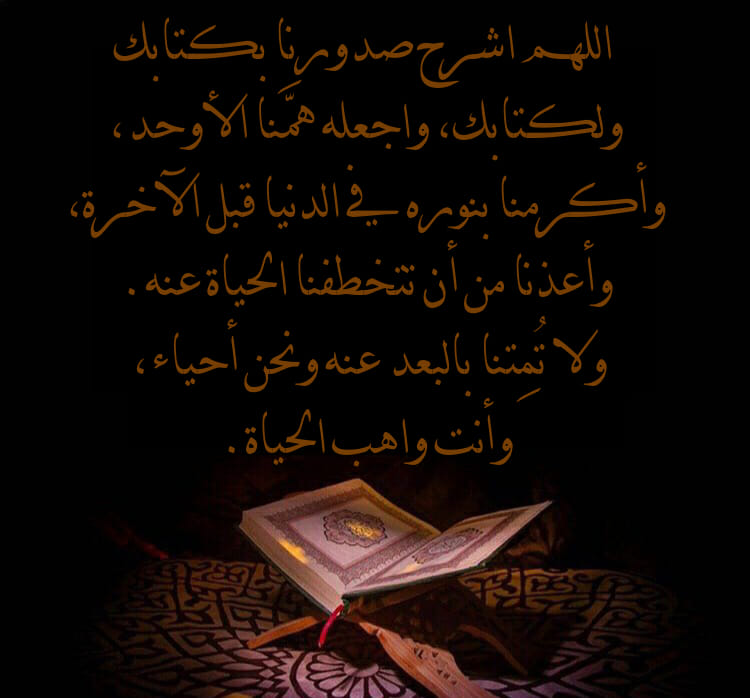 اللهم اشرح صدورنا بكتابك
ولكتابك، واجعله همَّنا الأوحد،
وأكرمنا بنوره في الدنيا قبل الآخرة،
وأعذنا من أن تتخطفنا الحياة عنه.
ولا تُمِتنا بالبعد عنه ونحن أحياء،
وأنت واهب الحياة.